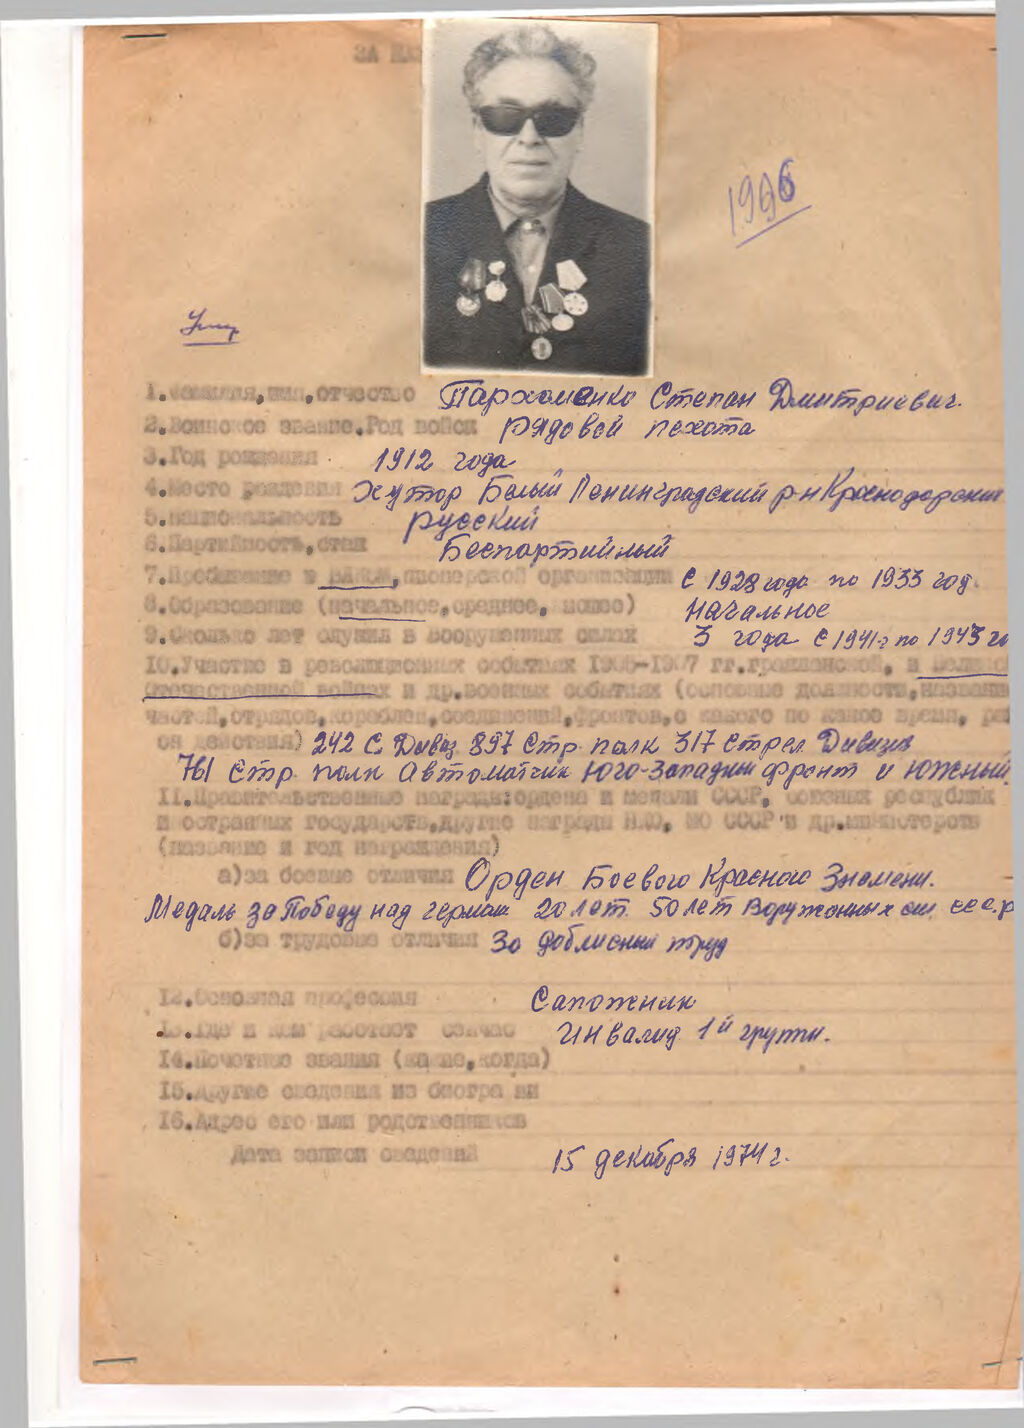 ЗА
1996
Умер
1.Фамилия,имя,отчество Пархоменко Степан Дмитриевич.
2.Воинское звание.Род войск рядовой пехота
3.Год рождения 1912 года
4.Место рождения хутор Белый Ленинградский р-н Краснодарский
5.Национальность русский
6.Партийность,стаж Беспартийный
7.Пребывание в ВЛКСМ,пионерской организации с 1928 года по 1933 год.
8.Образование (начальное,среднее, высшее) Начальное
9.Сколько лет служил в вооруженных силах 3 года с 1941 г по 1943 го
10.Участие в революционных событиях 1905-1907 гг.гражданской, и Велико
Отечественной войнах и др.военных событиях (основные должности,названия
частей,отрядов,кораблей,соединений,фронтов,с какого по какое время, ра
он действия) 242 С. Дивиз. 897 Стр. полк 317 Стрел. Дивизия
761 Стр. полк Автоматчик Юго-Западный фронт и Южный
11.Правительственные награды:ордена и медали СССР, союзных республик
иностранных государств,другие награды МО СССР и др.министерств
(название и год награждения)
а)за боевые отличия Орден Боевого Красного Знамени.
Медаль за Победу над герман. 20 лет. 50 лет Вооруженных сил СССР
б)за трудовые отличия За доблисный труд
12.Основная профессия Сапожник
13.Где и кем работает сейчас Инвалид 1й групы.
14.Почетные звания (какие,когда)
15.Другие сведения из биогра ии
16.Адрес его или родственников
Дата записи сведений 15 декабря 1974 г.